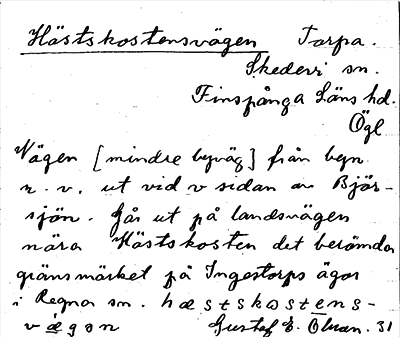 Hästskostensvägen Torpa.
Skedevi sn.
Finspånga Läns hd.
Ögl
Vägen [mindre byväg] från byn
n. v. ut vid v sidan av Björ-
sjön. Går ut på landsvägen
nära Hästskosten det berömda
gränsmärket på Ingestorps ägor
i Regna sn. hæstskostens-
vägen Gustaf E. Öman. 31